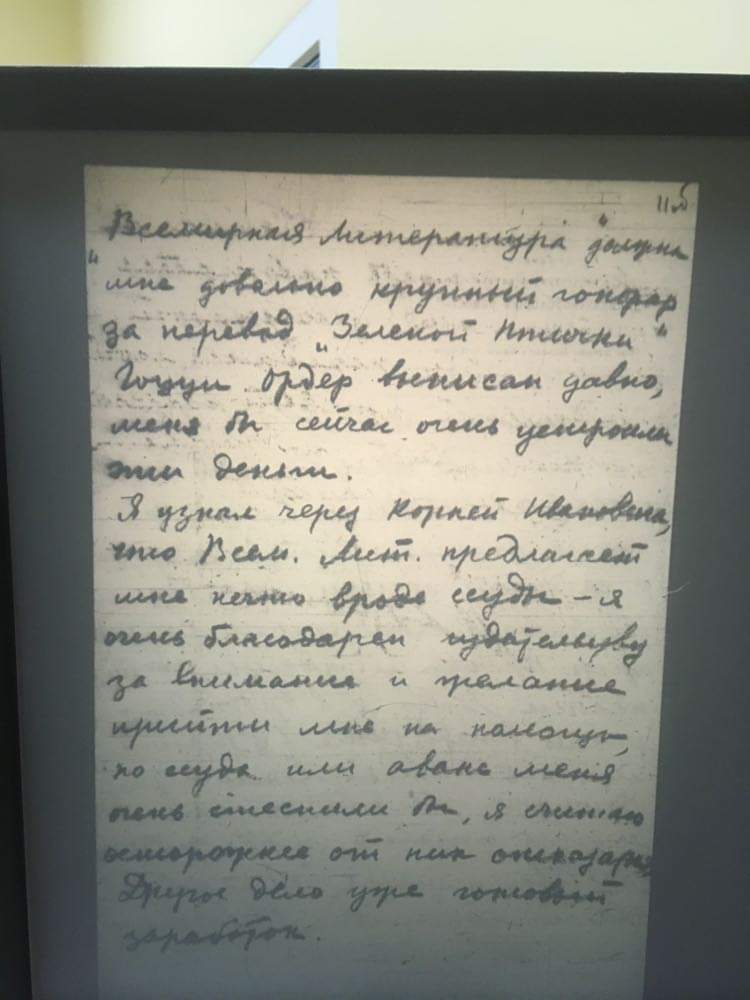 11об
„Всемирная Литература" должна
мне довольно крупный гонорар
за перевод „Зеленой Птички"
Гоцци. Ордер выписан давно,
меня бы сейчас очень устроили
эти деньги.
Я узнал через Корнея Ивановича,
что Всем. Лит. предлагает
мне нечто вроде ссуды – я
очень благодарен издательству
за внимание и желание
прийти мне на помощь,
но ссуда или аванс меня
очень стеснили бы, я считаю
осторожнее от них отказаться.
Другое дело уже готовый
заработок.